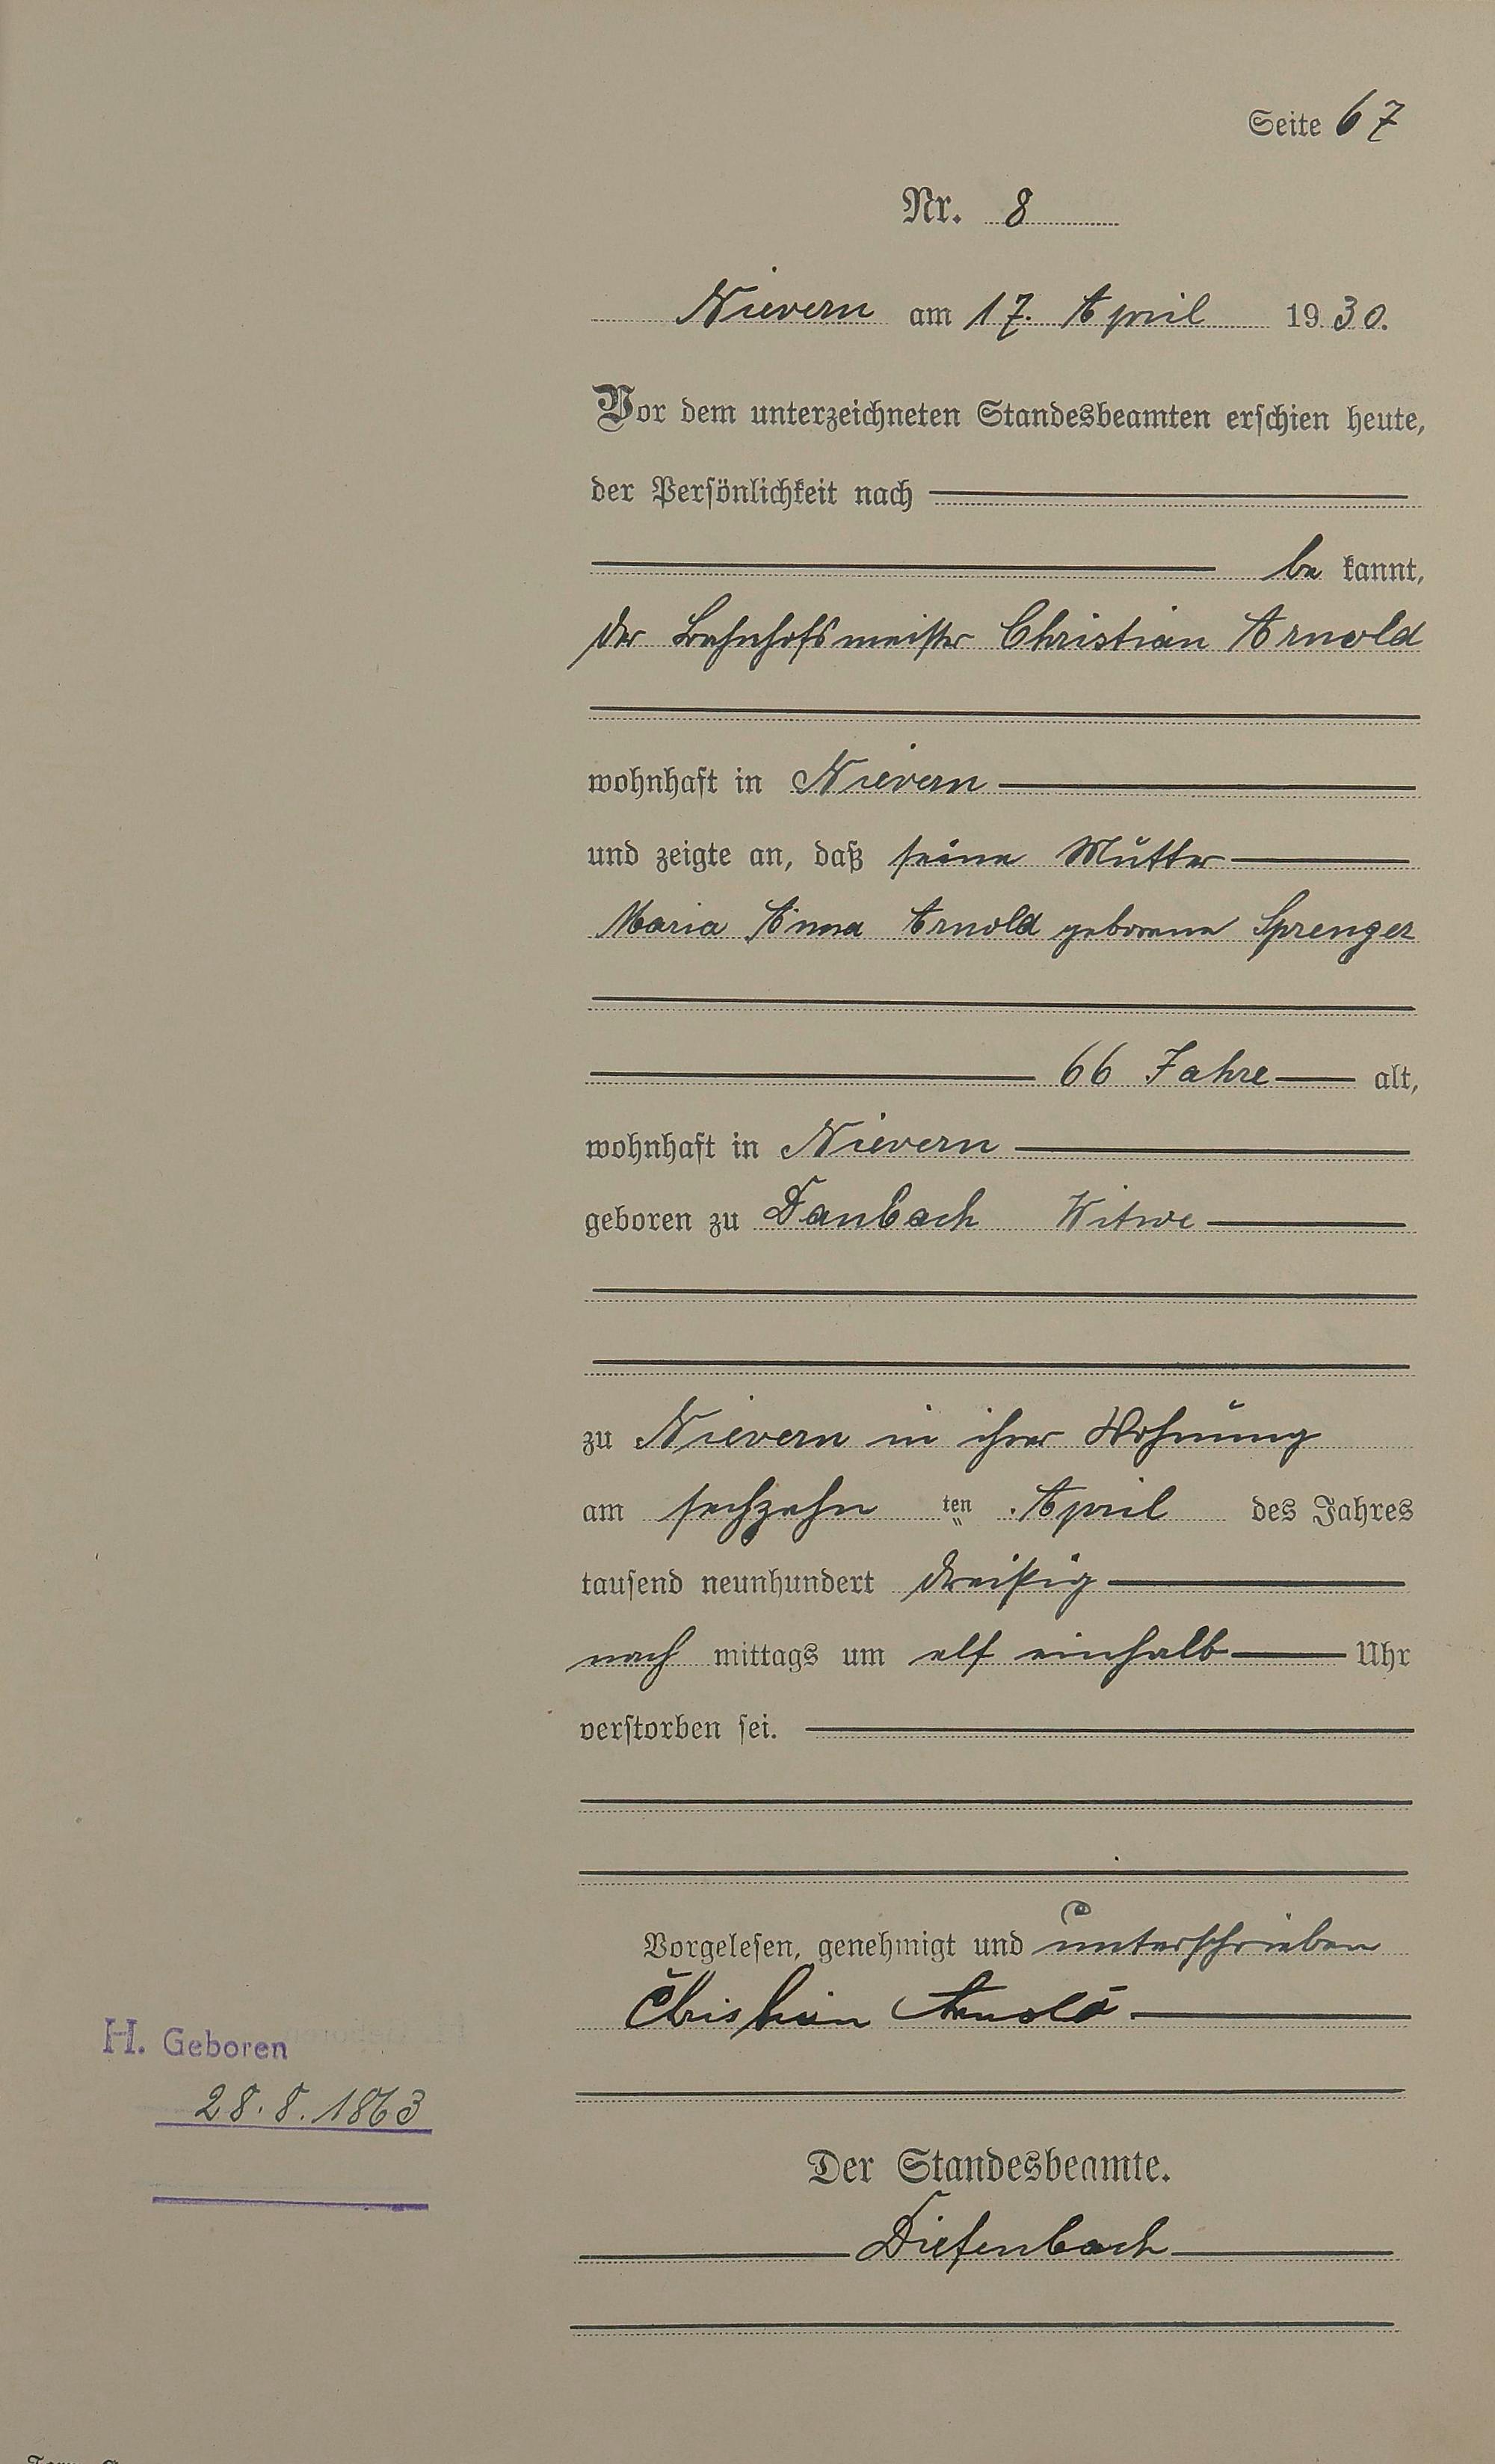 Seite 67
Nr. 8
Nievern am 17. April 1930.
Vor dem unterzeichneten Standesbeamten erschien heute,
der Persönlichkeit nach
be kannt,
der Bahnhofsmeister Christian Arnold
wohnhaft in Nievern
und zeigte an, daß seine Mutter
Maria Anna Arnold geborene Sprenger
66 Jahre alt,
wohnhaft in Nievern
geboren zu Danbach Witwe
zu Nievern in ihrer Wohnung
am sechzehn ten April des Jahres
tausend neunhundert dreißig
nach mittags um elf einhalb Uhr
verstorben sei.
Vorgelesen, genehmigt und unterschrieben
Christian Arnold
H. Geboren
28. 8. 1863
Der Standesbeamte.
Diefenbach